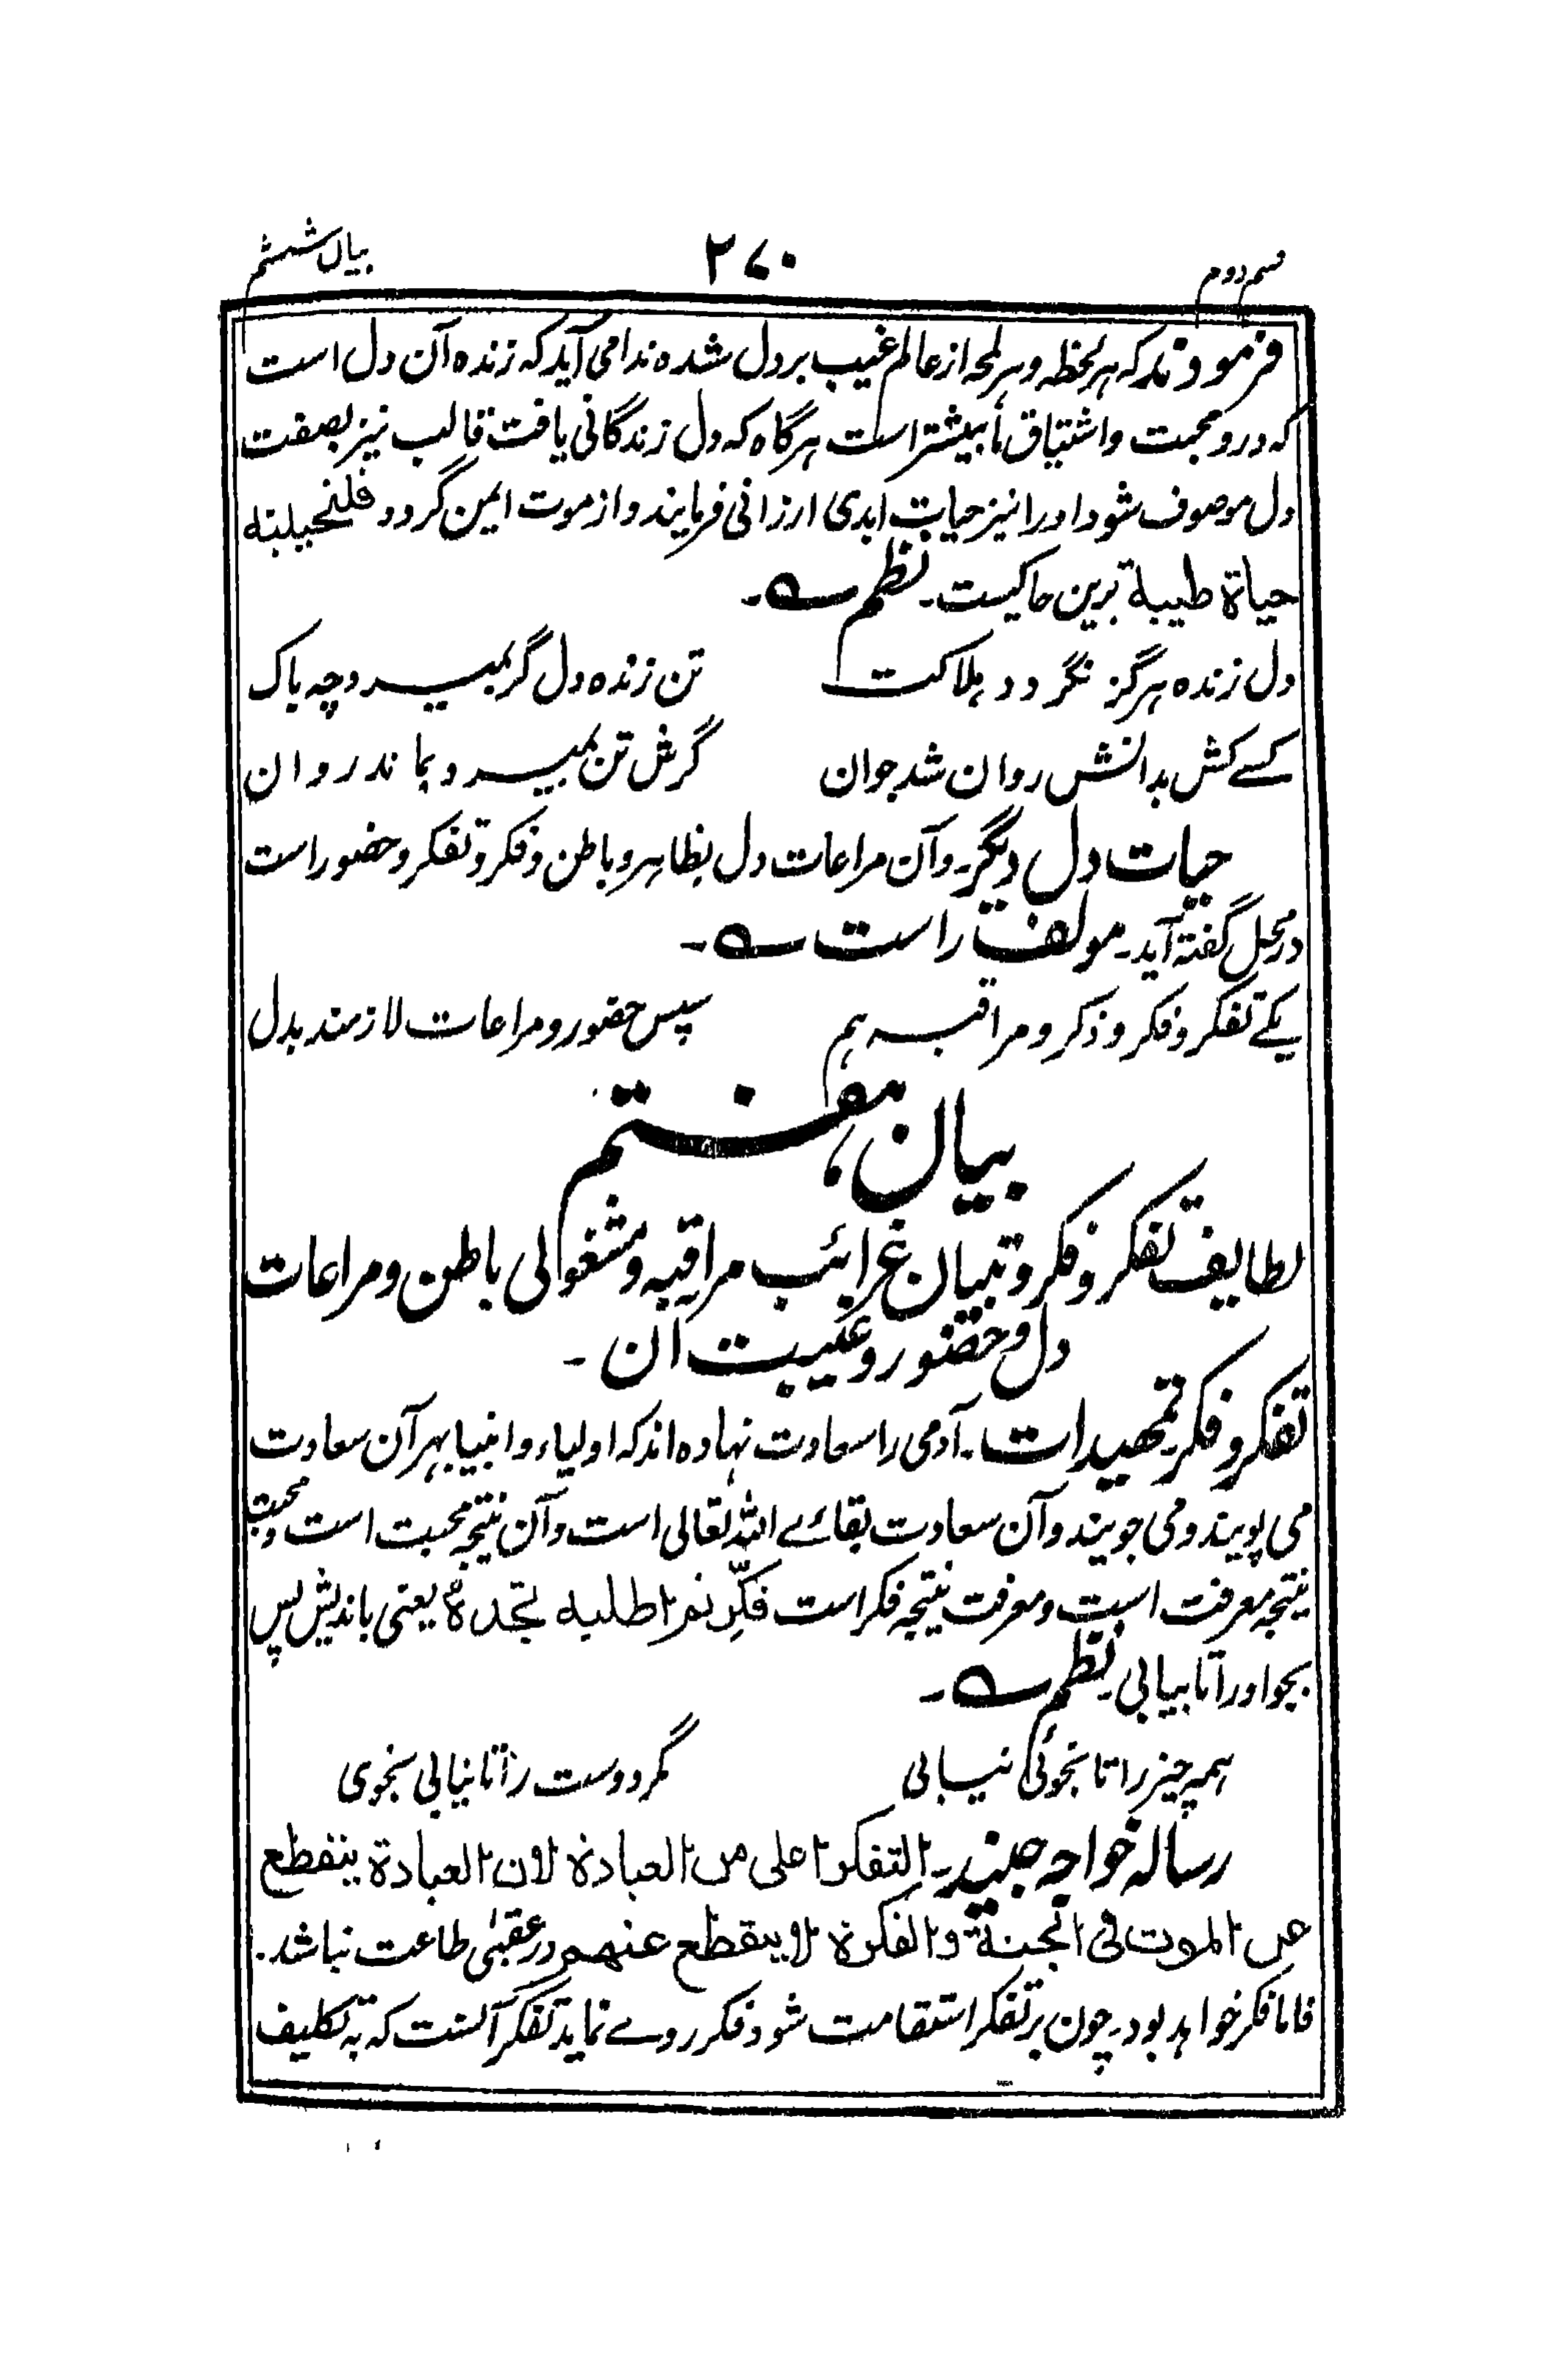 قسم دوم ۲۷۰ بیان ششم
فرمودند که هر لحظه و هر لمحه از عالم غیب بر دل شده ندا می آید که زنده آن دل است
که درو محبت و اشتیاق ما بیشتر است هرگاه که دل زندگانی یافت قالب نیز بصفت
دل موصوف شود او را نیز حیات ابدی ارزانی فرمایند و از موت ایمن گردد فلنحیینه
حیاة طیبة برین حاکیست۔ نظم ؎۔
دل زنده هرگز نگردد هلاکت تن زنده دل گر بمیرد چه باک
کسے کش بدانش روان شد جوان گرش تن بمیرد بماند روان
حیات دل دیگر۔ و آن مراعات دل بظاهر و باطن و فکر و تفکر و حضور است
در محل گفته آید۔ مولف راست ؎۔
یکے تفکر و فکر و ذکر و مراقبه هم سپس حضور و مراعات لازمند بدل
بیان هفتم
لطایف تفکر و فکر و تبیان غرائب مراقبه و مشغولی باطن و مراعات
دل و حضور و غیبت آن ۔
تفکر و فکر تمهیدات۔ آدمی را سعادت نهاده اند که اولیاء و انبیا بهر آن سعادت
می پویند و می جویند و آن سعادت بقائے الله تعالی است و آن نتیجه محبت است و محبت
نتیجه معرفت است و معرفت نتیجه فکر است فکّر ثم اطلبه تجده یعنی باندیش پس
بجو او را تا بیابی۔ نظم ؎۔
همه چیز را تا نجوئی نیابی مگر دوست را تا نیابی نجوی
رساله خواجه جنید۔ التفکر اعلی من العبادة لان العبادة ینقطع
من الموت فی الجنة و الفکرة لا ینقطع عنهم در عقبٰی طاعت نباشد۔
فاما فکر خواهد بود۔ چون بر تفکر استقامت شود فکر روے نماید تفکر آنست که به تکلیف